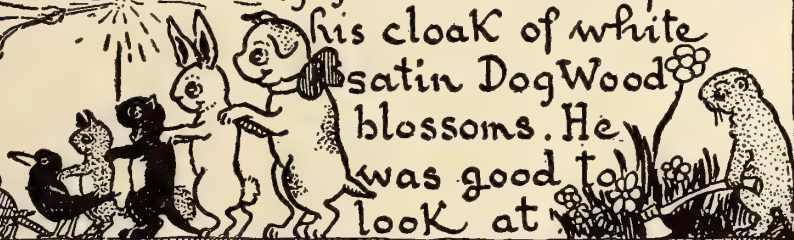 his cloak of white
satin DogWood
blossoms. He
was good to
look at